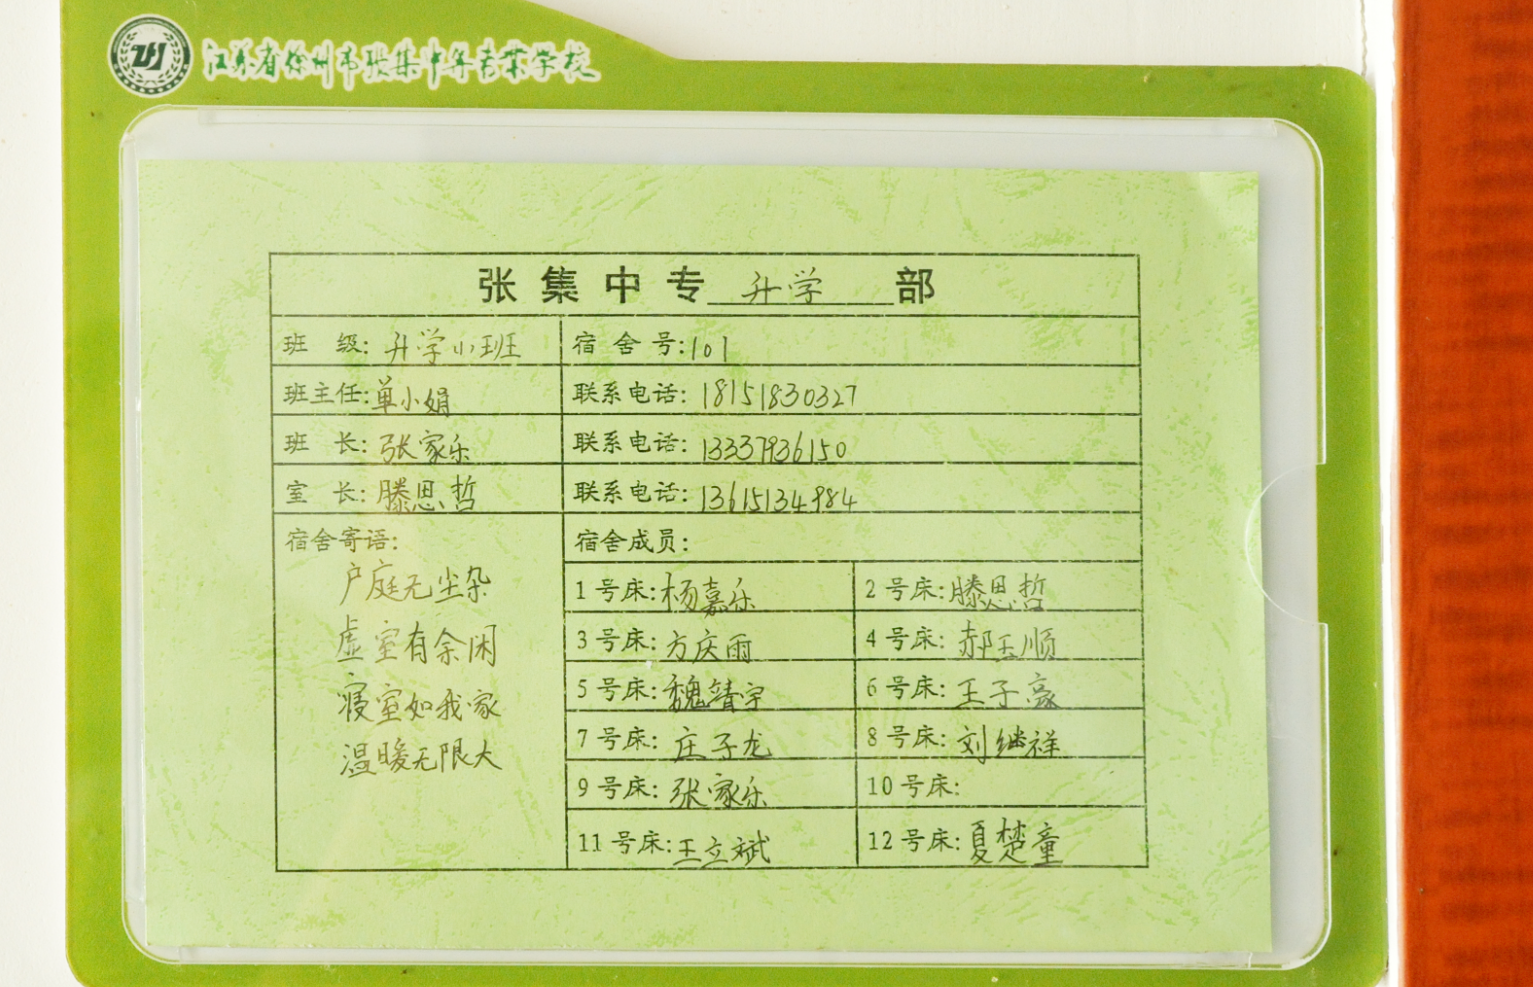 江苏省徐州市张集中等专业学校
张集中专 升学 部
班 级: 升学小班 宿舍号: 101
班主任: 单小娟 联系电话: 18151830327
班 长: 张家乐 联系电话: 13337936150
室 长: 滕思哲 联系电话: 13615134984
宿舍寄语: 宿舍成员:
户庭无尘杂
虚室有余闲
寝室如我家
温暖无限大
1号床: 杨嘉乐 2号床: 滕思哲
3号床: 方庆雨 4号床: 郝玉顺
5号床: 魏靖宇 6号床: 王子豪
7号床: 庄子龙 8号床: 刘继祥
9号床: 张家乐 10号床:
11号床: 王立斌 12号床: 夏楚童